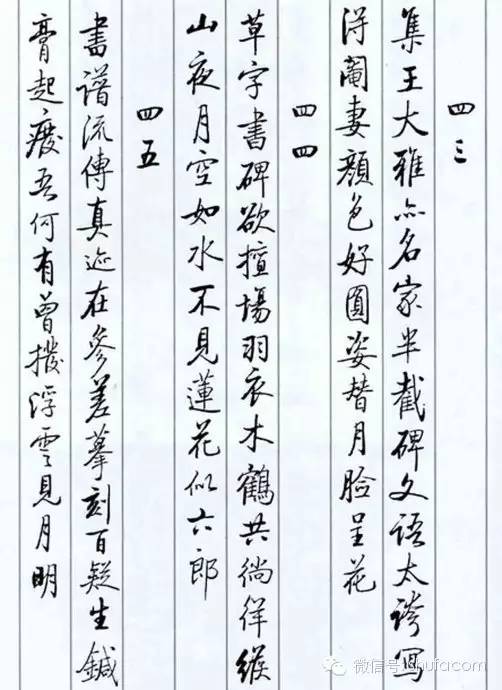 四三
集王大雅亦名家半截碑文语太誇寫
淂閹妻顔色好圓姿替月臉呈花
四四
草字書碑欲擅場羽衣木鶴共徜徉緱
山夜月空如水不見蓮花似六郎
四五
書譜流傳真迹在參差摹刻百疑生鍼
膏起癈吾何有曾撥浮雲見月明
微信号:shufacom